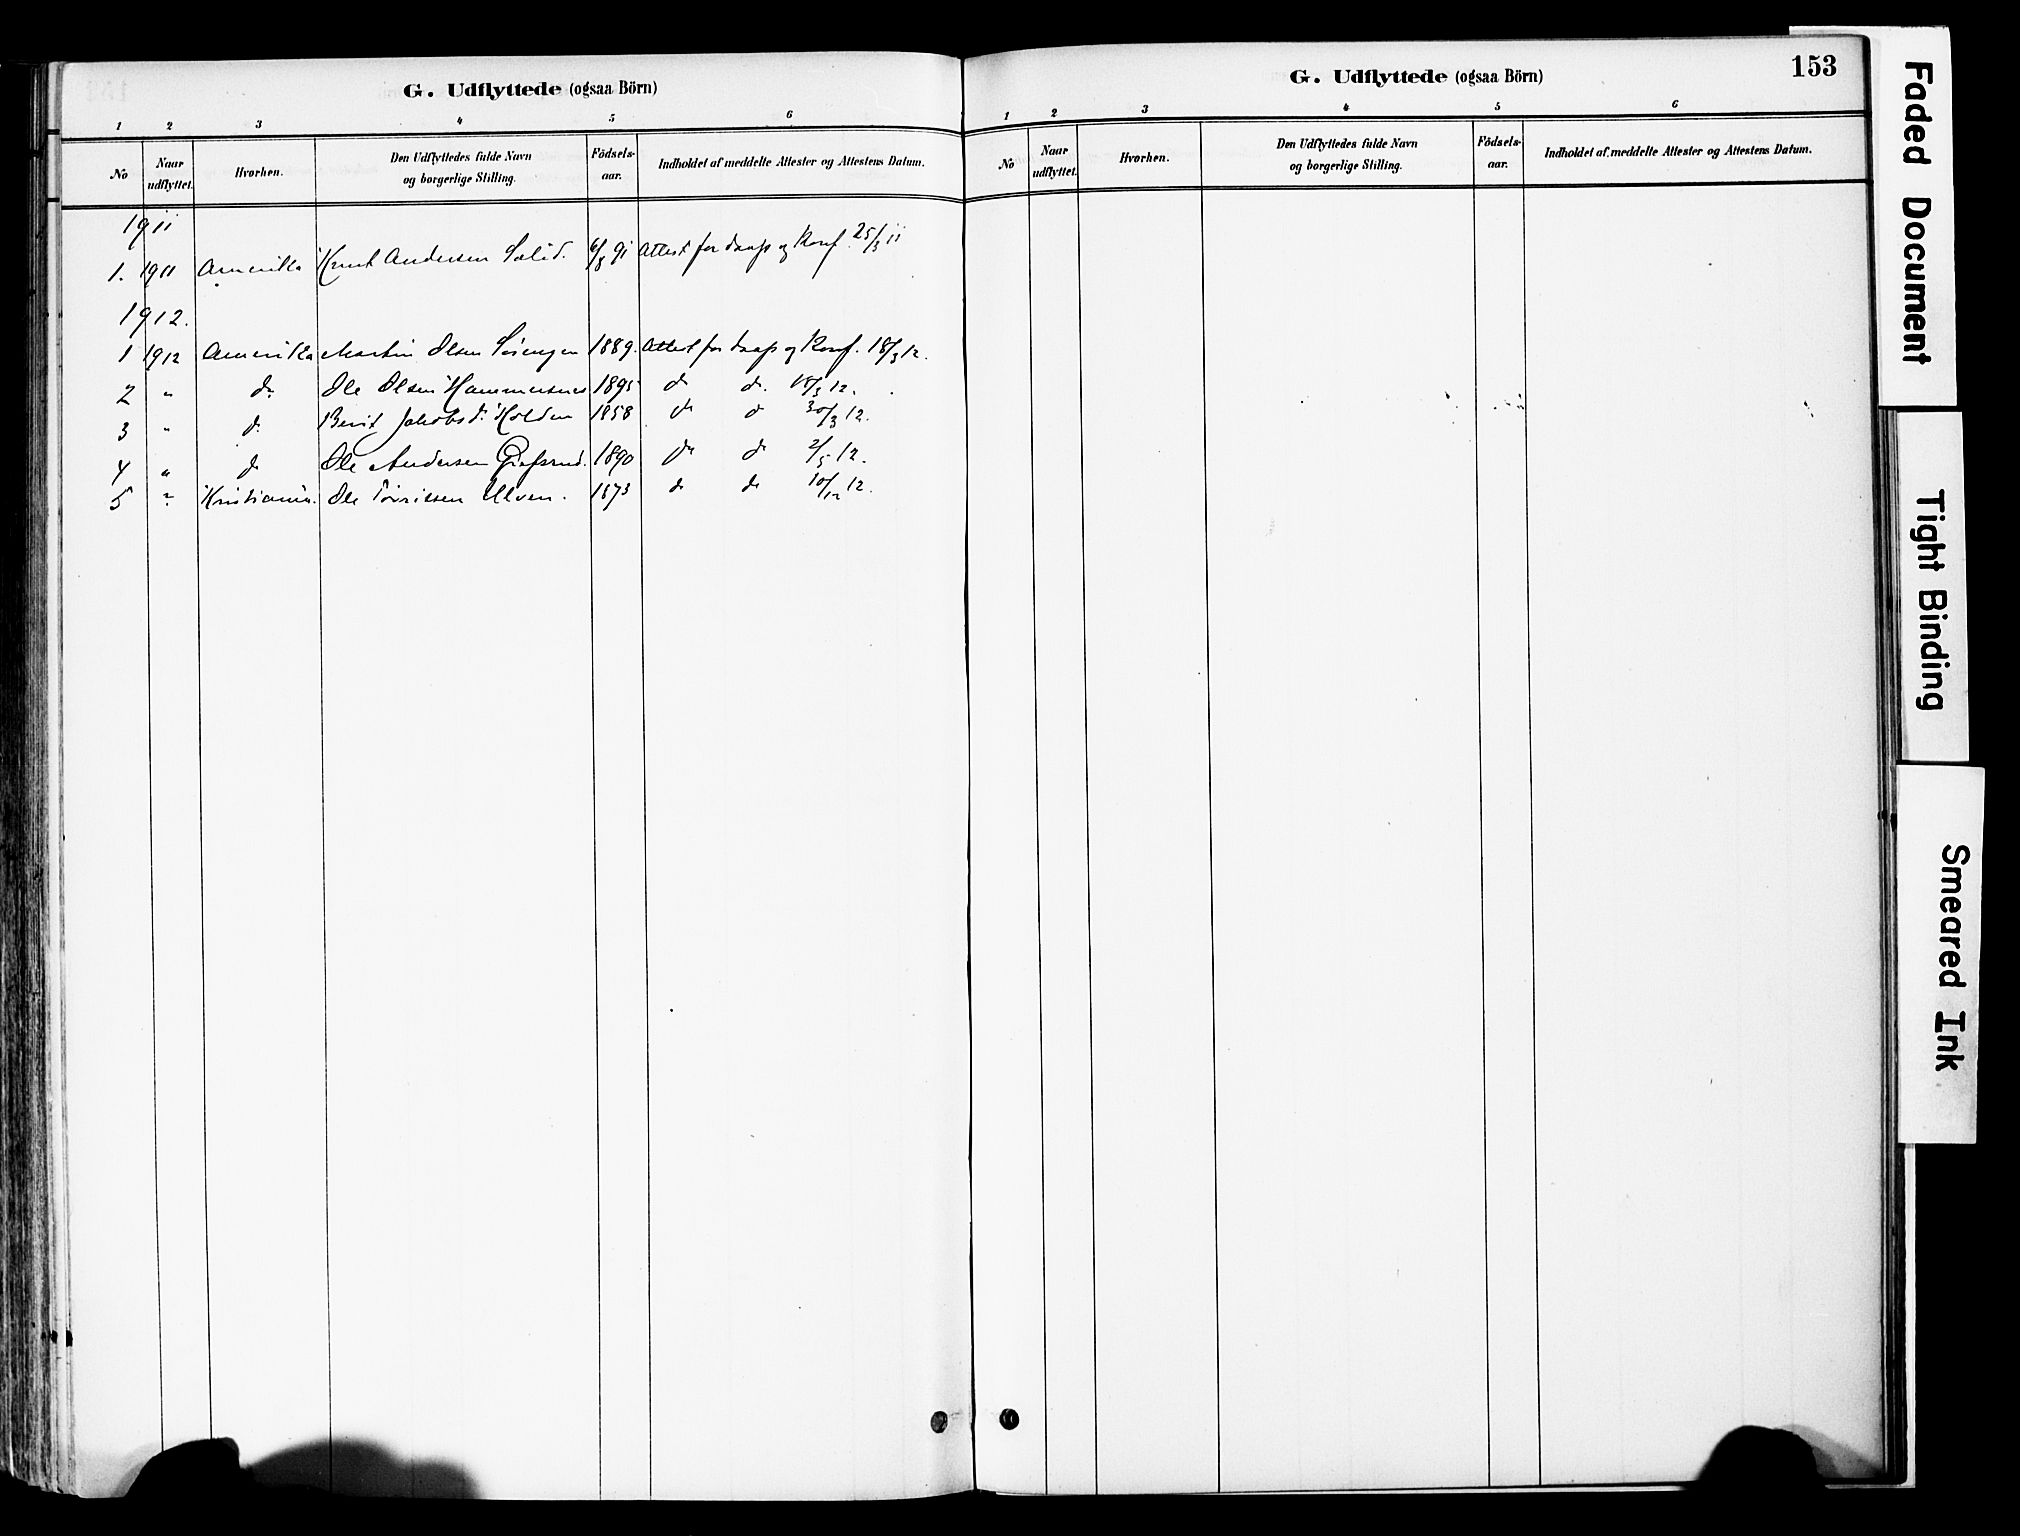 G. Udflyttede (ogsaa Börn)
1 2 3 4 5 6
No Naar udflyttet. Hvorhen. Den Udflyttedes fulde Navn og borgerlige Stilling. Födsels-aar. Indholdet af meddelte Attester og Attestens Datum.
1911
1. 1911 Amerika Knut Andersen 6/8 91 Attest for daap og Konf. 25/3 11
1912.
1 1912 Amerika Martin Olsen 1889. Attest for daap og Konf. 18/3 12.
2 " do Ole Olsen Hammersnes 1895 do do. 18/3 12.
3 " do Berit Jakobsd. Holden 1858 do do 30/3 12.
4 " do Ole Andersen 1890 do do 2/5 12.
5 " Kristiania. Ole Ulven. 1873 do do 10/12 12.
G. Udflyttede (ogsaa Börn)
153
1 2 3 4 5 6
No Naar udflyttet. Hvorhen. Den Udflyttedes fulde Navn og borgerlige Stilling. Födsels-aar. Indholdet af meddelte Attester og Attestens Datum.
Faded Document
Tight Binding
Smeared Ink